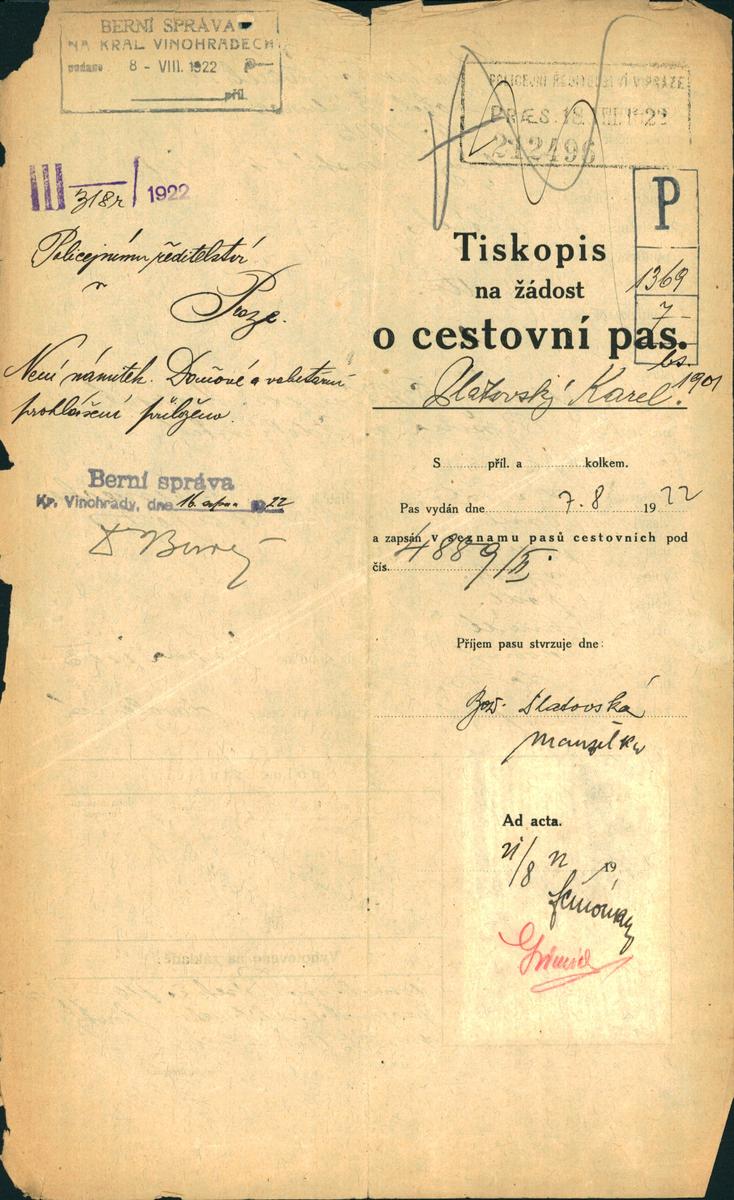 BERNÍ SPRÁVA
NA KRÁL VINOHRADECH
podáno 8 - VIII. 1922
příl.
III 318r / 1922
Policejnímu ředitelství
v
Praze.
Není námitek. Domovské a
prohlášení přiloženo.
Berní správa
Kr. Vinohrady, dne 16. srpna 1922
POLICEJNÍ ŘEDITELSTVÍ V PRAZE
PRÆS. 18. VIII. 1922
212496
P
1369
7
1901
Tiskopis
na žádost
o cestovní pas.
Slatovský Karel.
S příl. a kolkem.
Pas vydán dne 7. 8 1922
a zapsán v seznamu pasů cestovních pod
čís. 4889/II.
Příjem pasu stvrzuje dne:
Slatovská
manželka
Ad acta.
21/8 22 19